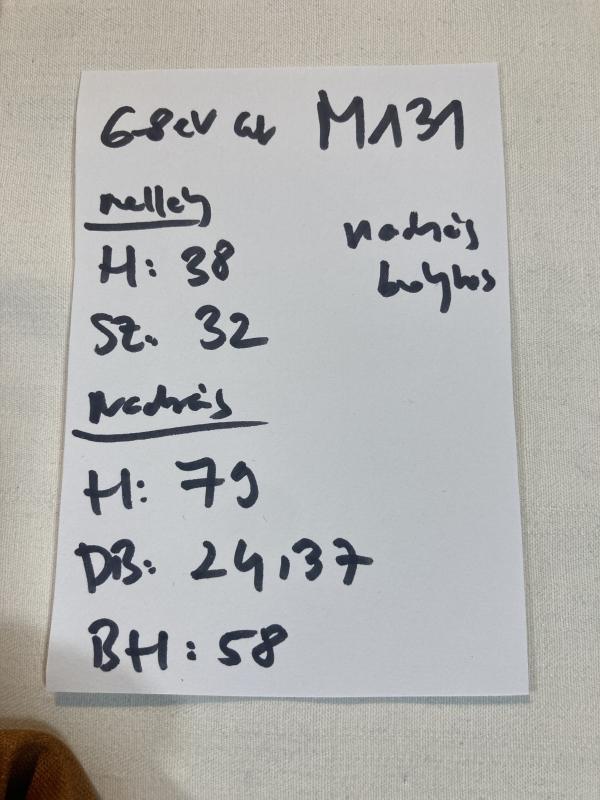 6-8 év M131
mellény
H: 38
SZ. 32
nadrág
bolyhos
Nadrág
H: 79
DB: 24,37
BH: 58